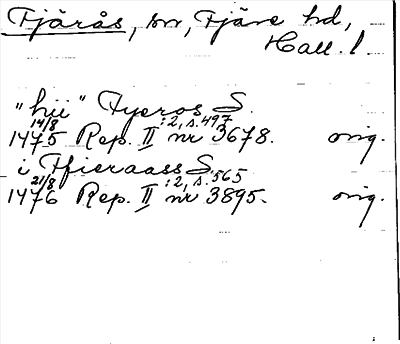 Fjärås, sn, Fjäre hd,
Hall. l.
"hii" Fyeros S.
14/8 :2, s. 497
1475 Rep. II nr 3678. orig.
i Ffieraass S.
21/8 :2, s. 565
1476 Rep. II nr 3895. orig.